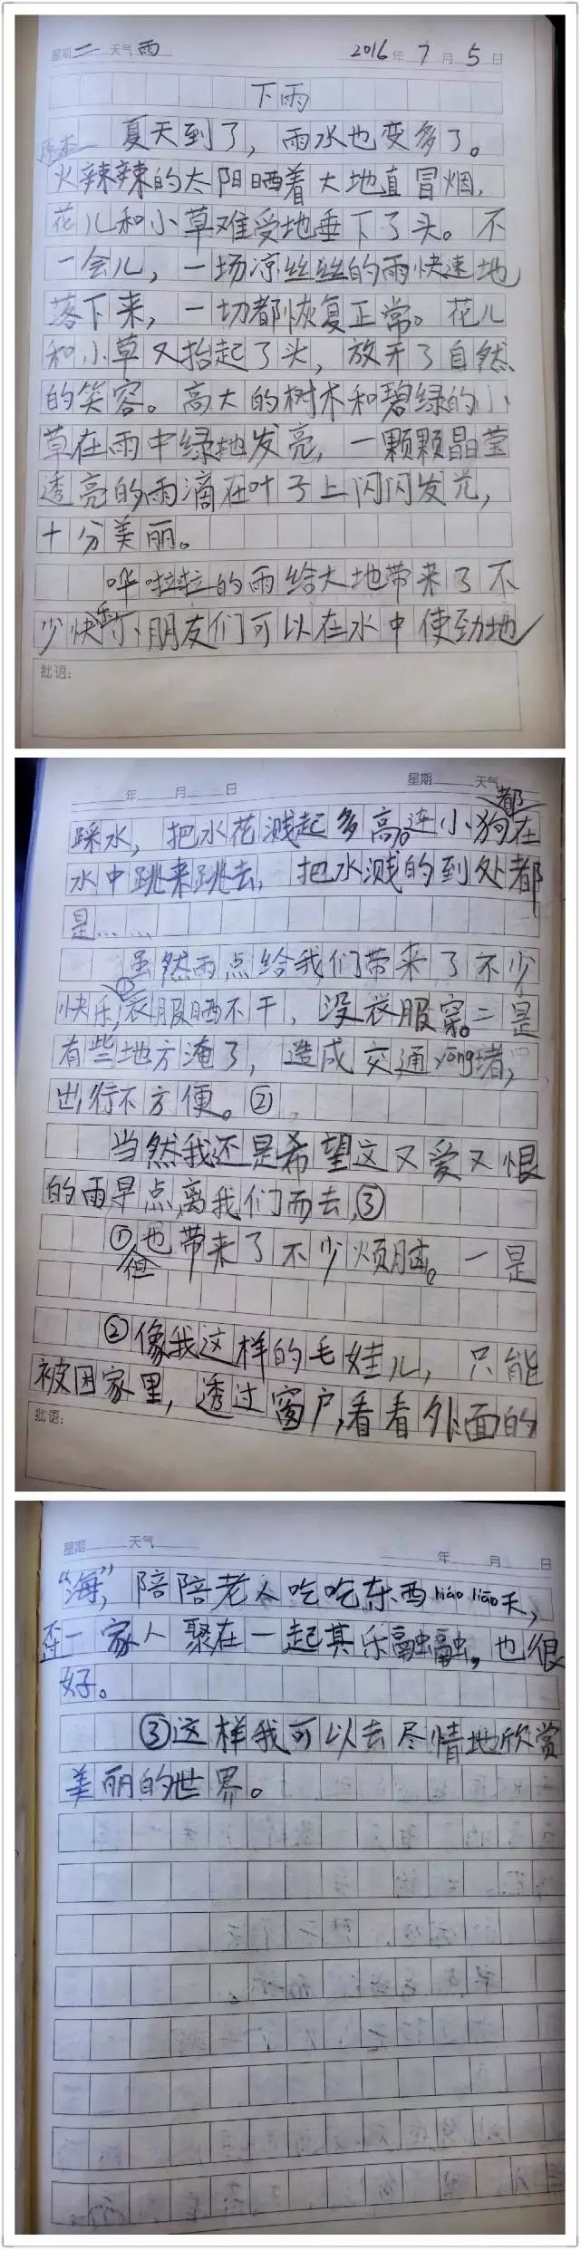 星期二 天气雨 2016年7月5日
下雨
原本 夏天到了，雨水也变多了。
火辣辣的太阳晒着大地直冒烟，
花儿和小草难受地垂下了头。不
一会儿，一场凉丝丝的雨快速地
落下来，一切都恢复正常。花儿
和小草又抬起了头，放开了自然
的笑容。高大的树木和碧绿的小
草在雨中绿地发亮，一颗颗晶莹
透亮的雨滴在叶子上闪闪发光，
十分美丽。
哗啦啦的雨给大地带来了不
少快乐，小朋友们可以在水中使劲地
批语：
年 月 日 星期 天气
踩水，把水花溅起多高。连小狗都在
水中跳来跳去，把水溅的到处都
是……
虽然雨点给我们带来了不少
快乐，①衣服晒不干，没衣服穿。二是
有些地方淹了，造成交通yōng堵，
出行不方便。②
当然我还是希望这又爱又恨
的雨早点离我们而去，③
①但也带来了不少烦脑。一是
②像我这样的毛娃儿，只能
被困家里，透过窗户，看看外面的
批语：
星期 天气 年 月 日
“海”，陪陪老人吃吃东西liáo liāo天，
一家人聚在一起其乐融融，也很
好。
③这样我可以去尽情地欣赏
美丽的世界。